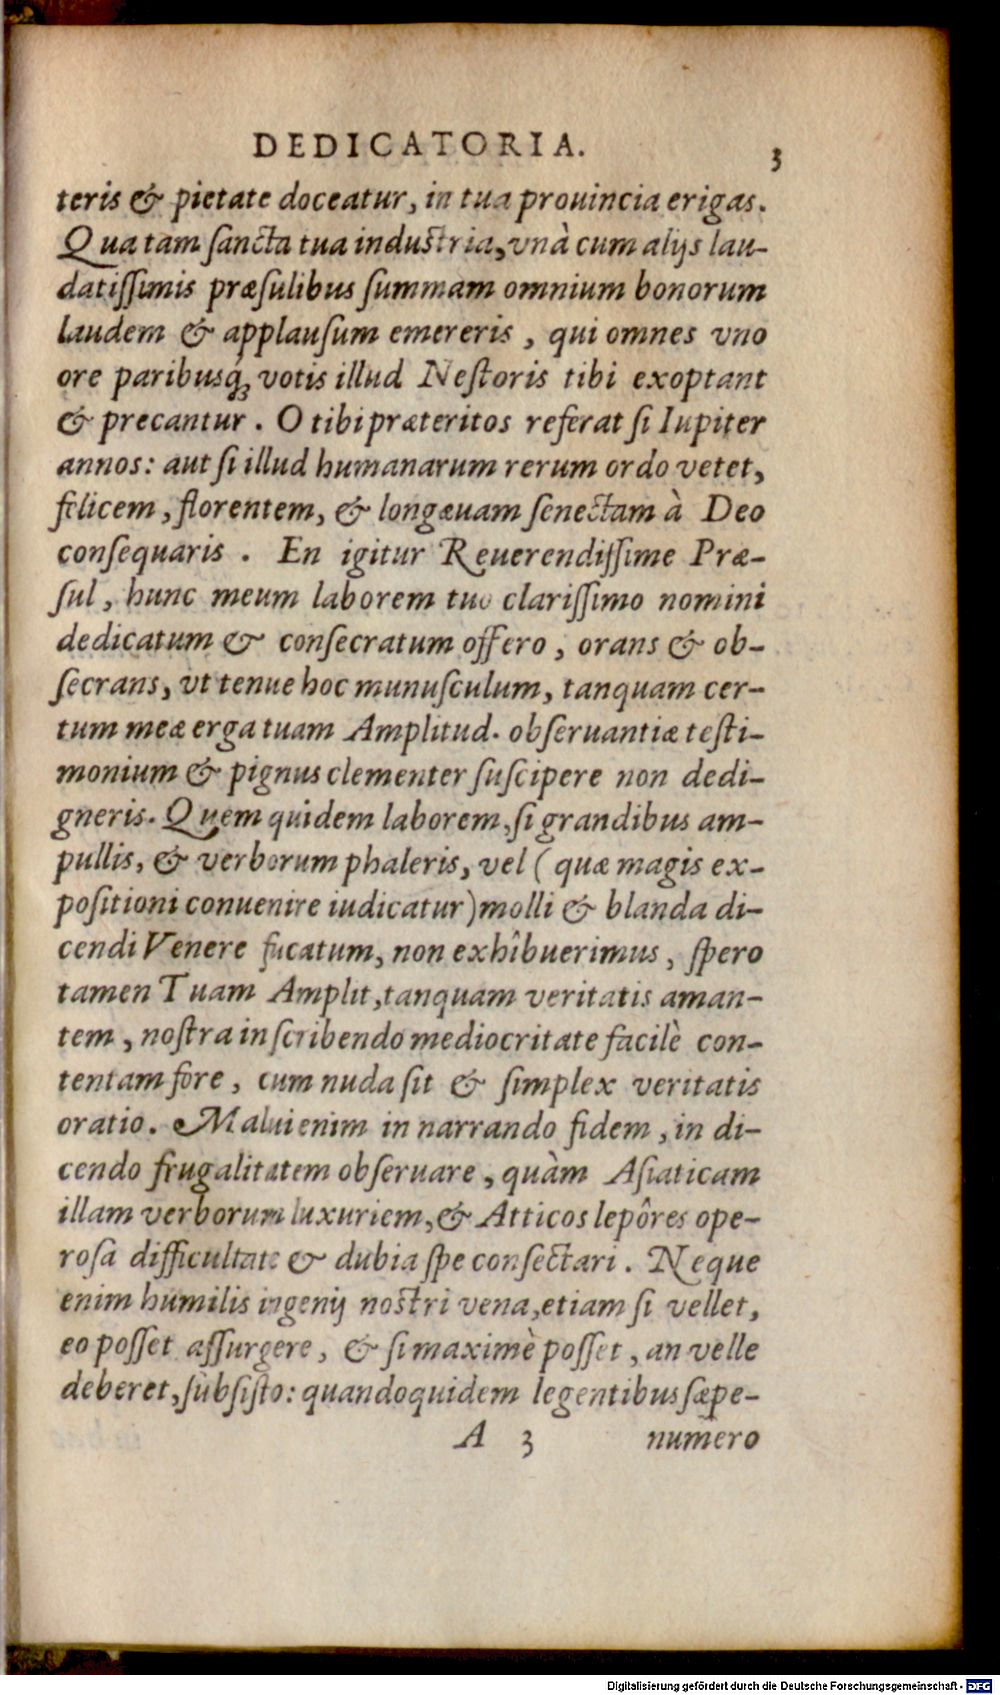 DEDICATORIA. 3
teris & pietate doceatur, in tua prouincia erigas.
Qua tam sancta tua industria, vnà cum alijs lau-
datissimis præsulibus summam omnium bonorum
laudem & applausum emereris, qui omnes vno
ore paribusq́; votis illud Nestoris tibi exoptant
& precantur. O tibi præteritos referat si Iupiter
annos: aut si illud humanarum rerum ordo vetet,
felicem, florentem, & longæuam senectam à Deo
consequaris. En igitur Reuerendissime Præ-
sul, hunc meum laborem tuo clarissimo nomini
dedicatum & consecratum offero, orans & ob-
secrans, vt tenue hoc munusculum, tanquam cer-
tum meæ erga tuam Amplitud. obseruantiæ testi-
monium & pignus clementer suscipere non dedi-
gneris. Quem quidem laborem, si grandibus am-
pullis, & verborum phaleris, vel (quæ magis ex-
positioni conuenire iudicatur) molli & blanda di-
cendi Venere fucatum, non exhîbuerimus, spero
tamen Tuam Amplit, tanquam veritatis aman-
tem, nostra in scribendo mediocritate facilè con-
tentam fore, cum nuda sit & simplex veritatis
oratio. Malui enim in narrando fidem, in di-
cendo frugalitatem obseruare, quàm Asiaticam
illam verborum luxuriem, & Atticos lepôres ope-
rosa difficultate & dubia spe consectari. Neque
enim humilis ingenij nostri vena, etiam si vellet,
eo posset assurgere, & si maximè posset, an velle
deberet, subsisto: quandoquidem legentibus sæpe-
A 3 numero
Digitalisierung gefördert durch die Deutsche Forschungsgemeinschaft - DFG